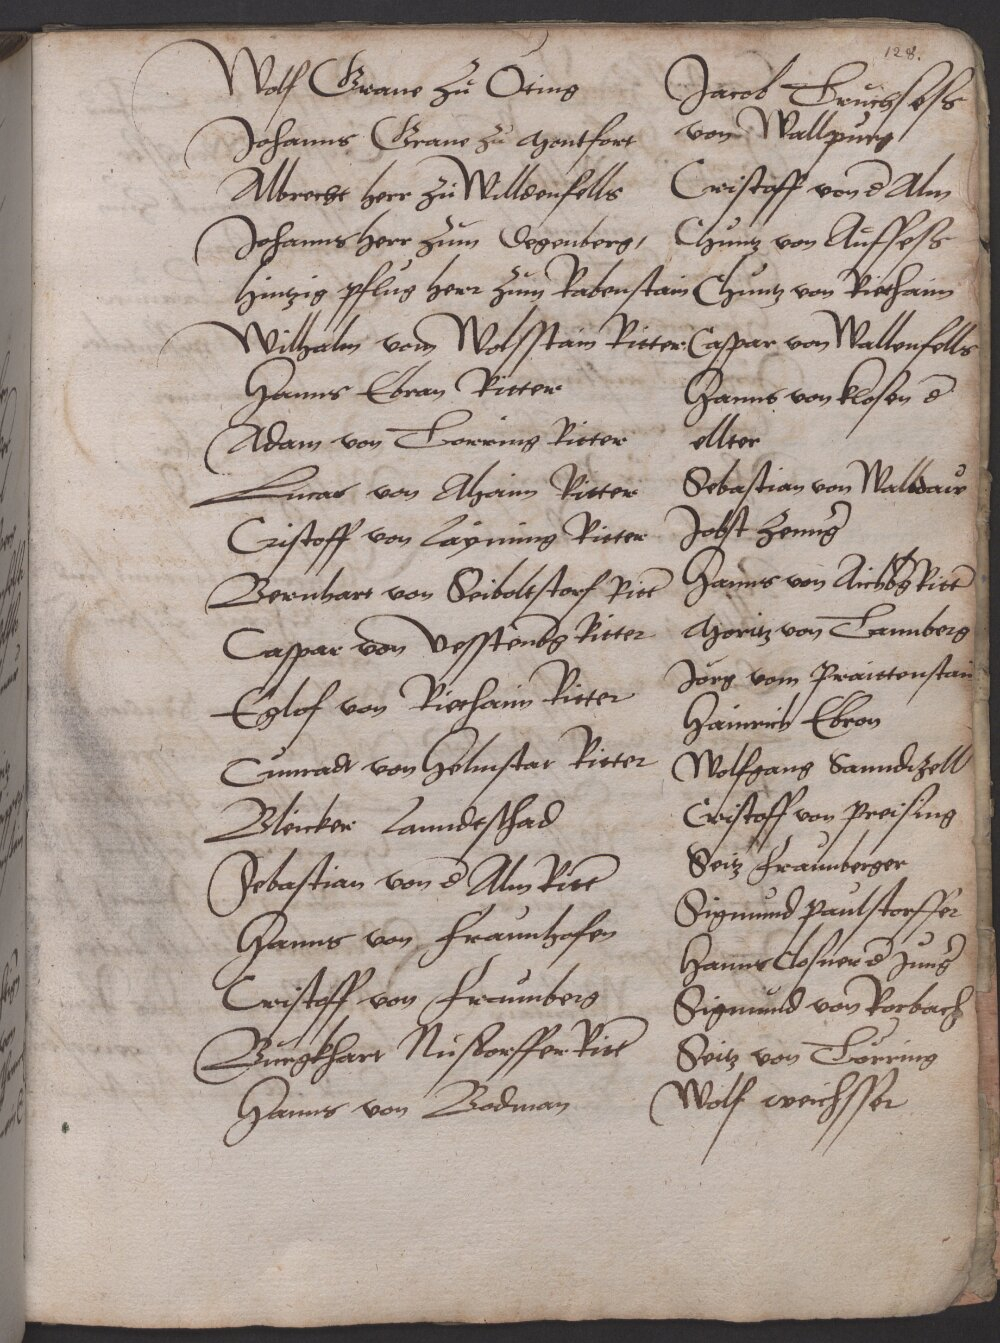 128.
Wolf Graue zu Oting
Johanns Graue zu Montfort
Albrecht herr zu Willdenfells
Johanns herr zum Degenberg,
hintzig pflug herr zum Rabenstain
Wilhalm vom Wolfstain Ritter
Hanns Ebran Ritter
Adam von Torring Ritter
Lucas von Ahaim Ritter
Cristoff von Layming Ritter
Bernhart von Seiboltstorf Ritt
Caspar von Vesstenbg Ritter
Eglof von Riethaim Ritter
Cunradt von Helmstat Ritter
Bleicker Lanndtschad
Sebastian von d Alm Ritt
Hanns von Fraunhofen
Cristoff von Fraunberg
Burgkhart Nusdorffer Ritt
Hanns von Bodman
Jacob Truchsess
von Wallpurg
Cristoff von d Alm
Chuntz von Aufsess
Chuntz von Riethaim
Caspar von Wallenfells
Hanns von klosen d
ellter
Sebastian von Walldaw
Jobst Zenng
Hanns von Aichbg Ritt
Moritz von Tannberg
Jorg vom Praittenstain
Hainrich Ebron
Wolfgang Sanndizell
Cristoff von Preising
Seitz Fraunberger
Sigmund Paulstorffer
Hanns Closner d Jung
Sigmund von Rorbach
Seitz von Torring
Wolf weichsser